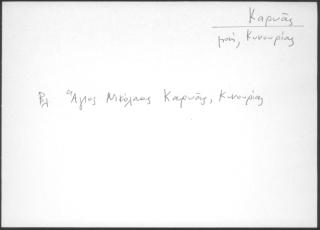 Καρυᾶς
μονή, Κυνουρίας
Βλ Ἅγιος Νικόλαος Καρυᾶς, Κυνουρίας